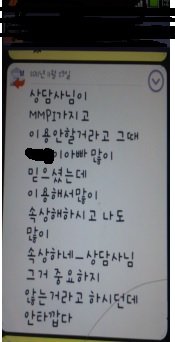 상담사님이
MMPI가지고
이용안할거라고 그때
이아빠 많이
믿으셨는데
이용해서많이
속상해하시고 나도
많이
속상하네_상담사님
그거 중요하지
않는거라고 하시던데
안타깝다